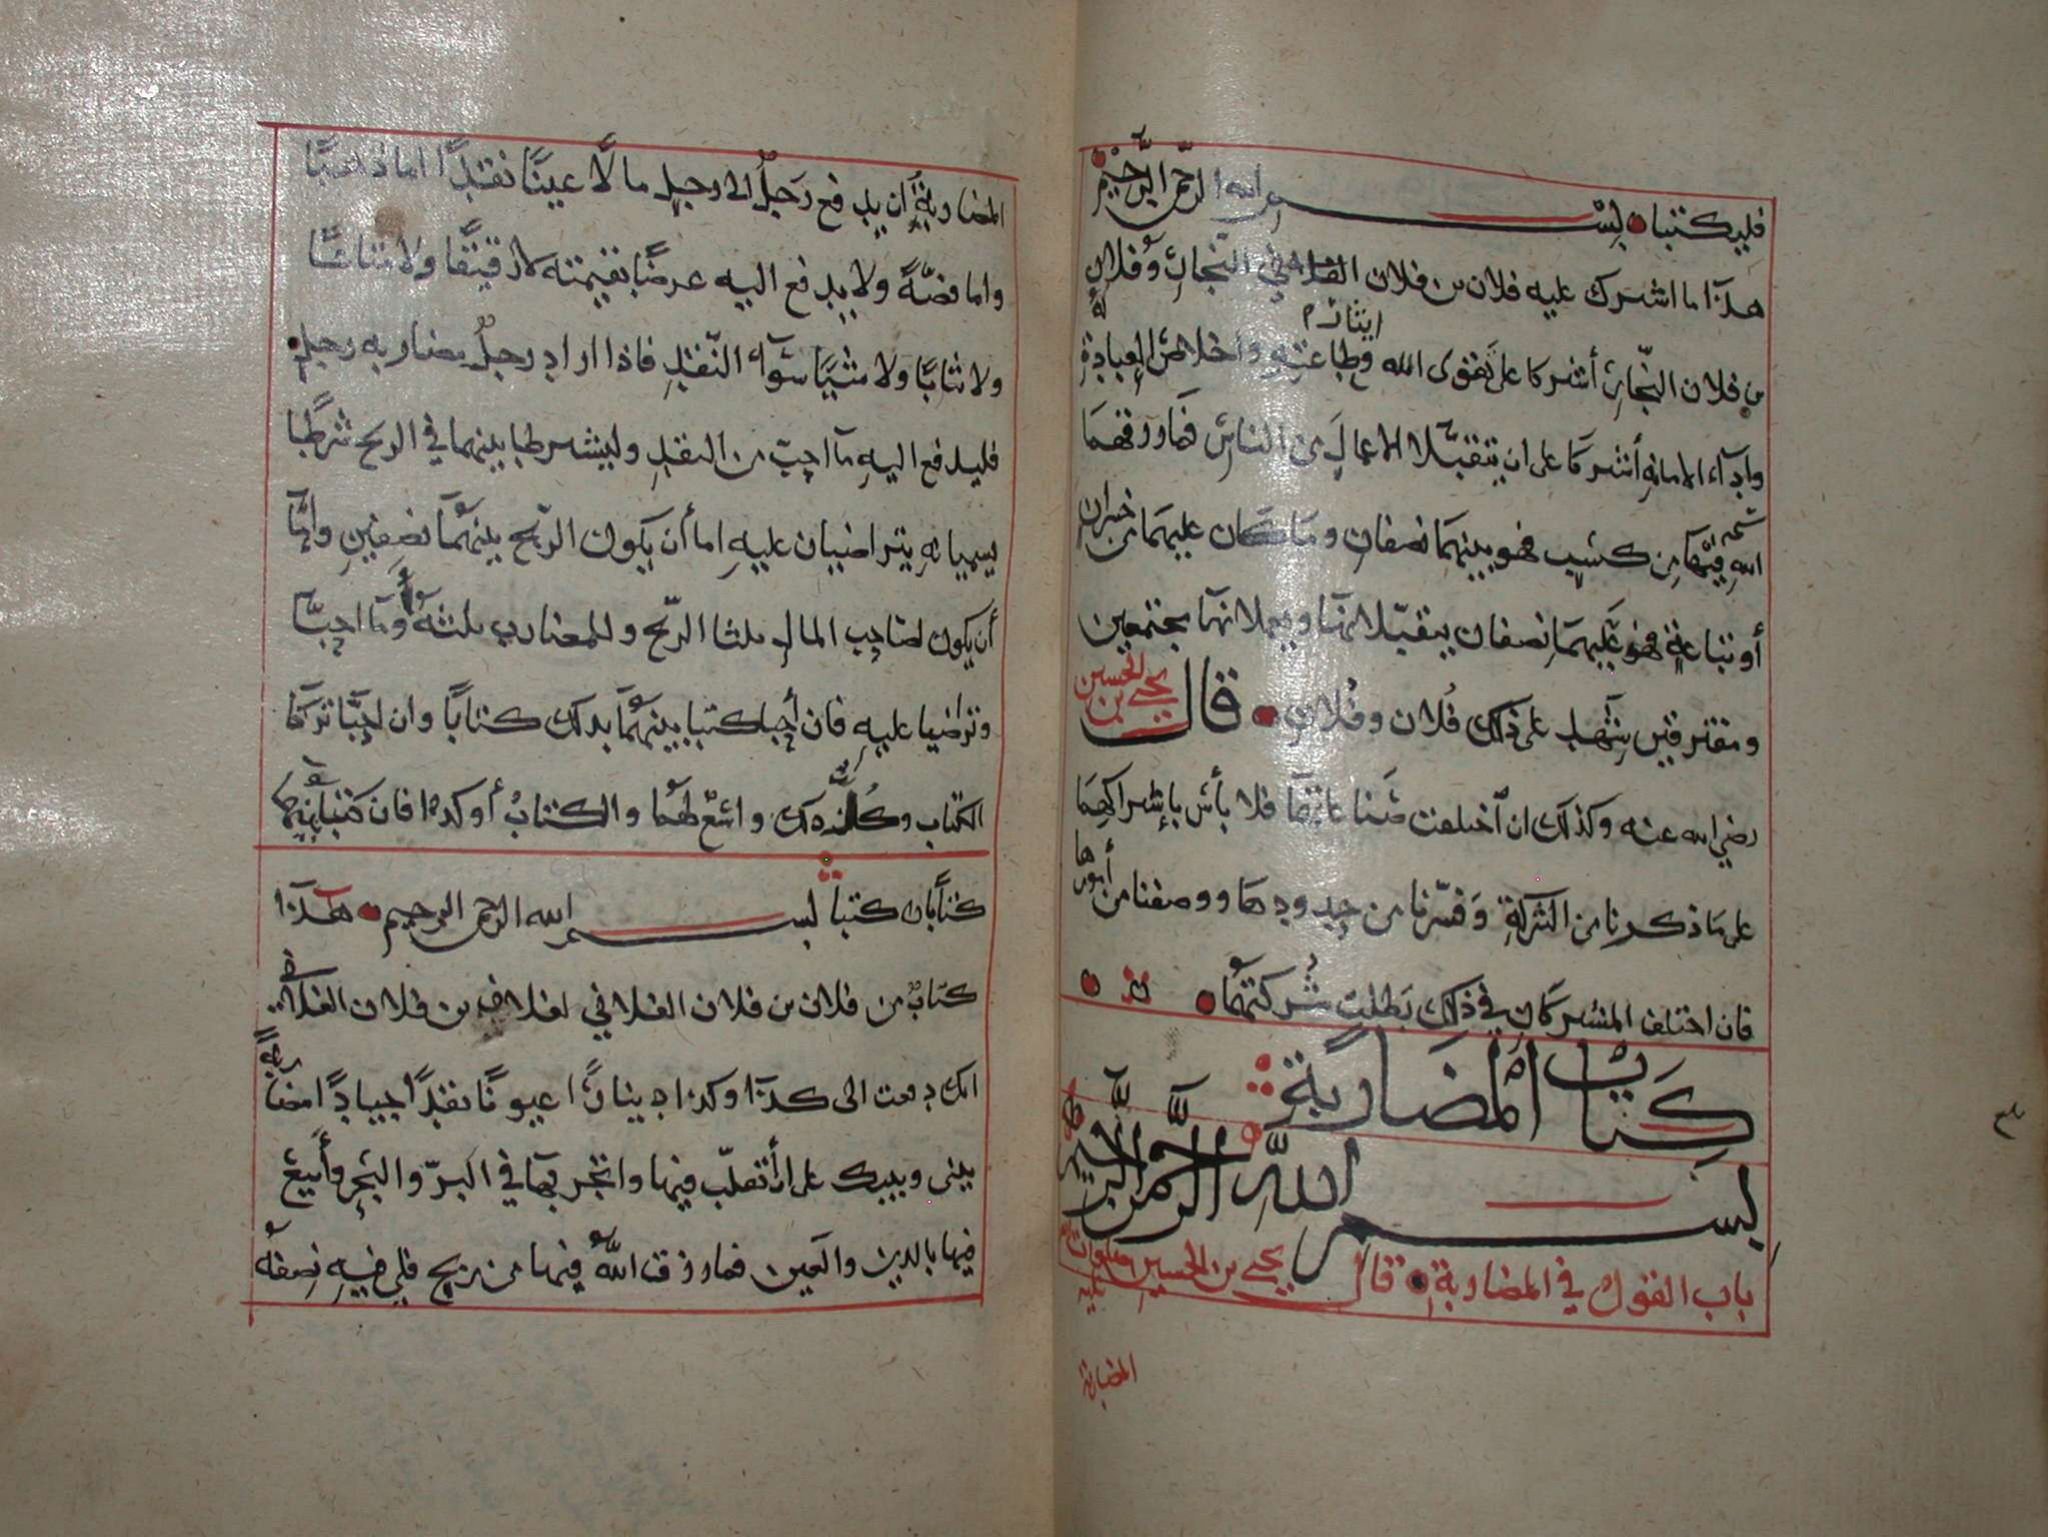 فليكتبا بسم الله الرحمن الرحيم
هذا ما اشترك عليه فلان بن فلان الفلاني النجار وفلان
بن فلان النجار أشتركا على تقوى الله وإيثار طاعته وإخلاص العبادة له
وأدآء الامانه أشتركا على ان يتقبلا الاعمال من الناس فما رزقهما
الله فيها من كسب فهو بينهما نصفان وما كان عليهما من خسران
أو تباعة فهو عليهما نصفان يتقبلانها ويعملانها مجتمعين
ومفترقين شهد على ذلك فلان وفلان قال يحيى بن الحسين
رضي الله عنه وكذلك ان اختلفت صناعاتهما فلا بأس بإشتراكهما
على ما ذكرنا من الشركة وفسرنا من حدودها ووصفنا من أمورها
فان اختلف المشتركان في ذلك بطلت شركتهما
كتاب المضاربة
بسم الله الرحمن الرحيم
باب القول في المضاربة قال يحيى بن الحسين صلوات الله عليه
المضاربة
المضاربة أن يدفع رجل الى رجل مالا عينا نقدا اما ذهبا
واما فضة ولا يدفع اليه عرضا بقيمته لا دقيقا ولا متاعا
ولا ثيابا ولا شيئا سوآء النقد فاذا اراد رجل يضارب رجل
فليدفع اليه ما احب من النقد وليشترطا بينهما في الربح شرطا
يسميانه يتراضيان عليه اما أن يكون الربح بينهما نصفين وإما
أن يكون لصاحب المال ثلثا الربح وللمضارب ثلثه وما احبا
وتراضيا عليه فان أحبا كتبا بينهما بذلك كتابا وان احبا تركا
الكتاب وكل ذلك واسع لهما والكتاب أوكد فان كتبا بينهما
كتابا كتبا بسم الله الرحمن الرحيم هذا
كتاب من فلان بن فلان الفلاني لفلان بن فلان الفلاني
انك دفعت الى كذا وكذا دينارا عيونا نقدا جيادا مضاربة
بيني وبينك على ان أتقلب فيها واتجر بها في البر والبحر وأبيع
فيها بالدين والعين فما رزق الله فيها من ربح فلي فيه نصفه